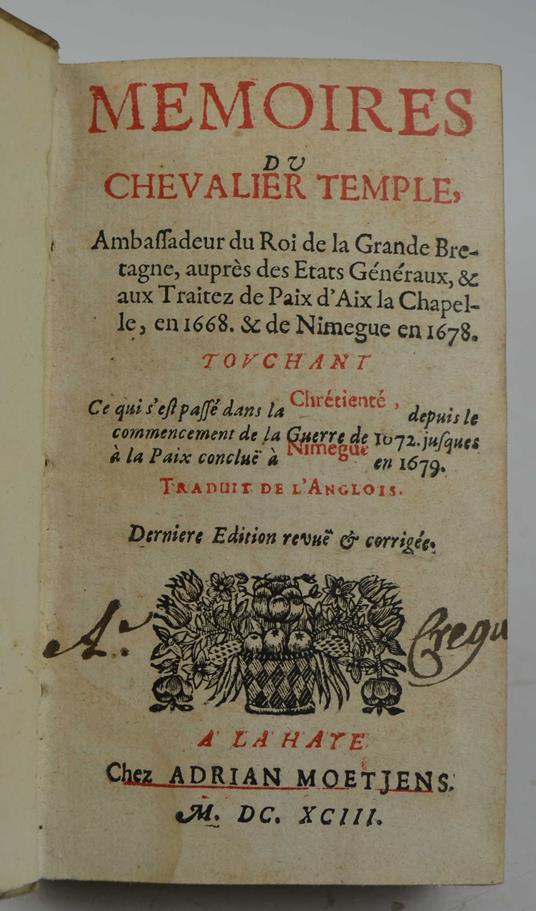 MEMOIRES
DU
CHEVALIER TEMPLE,
Ambaſſadeur du Roi de la Grande Bre-
tagne, auprès des Etats Généraux, &
aux Traitez de Paix d'Aix la Chapel-
le, en 1668. & de Nimegue en 1678.
TOVCHANT
Ce qui s'eſt paſſé dans la Chrétienté, depuis le
commencement de la Guerre de 1672. juſques
à la Paix concluë à Nimegue en 1679.
TRADUIT DE L'ANGLOIS.
Derniere Edition revuë & corrigée.
A. Crequ
A LA HAYE
Chez ADRIAN MOETJENS.
M. DC. XCIII.